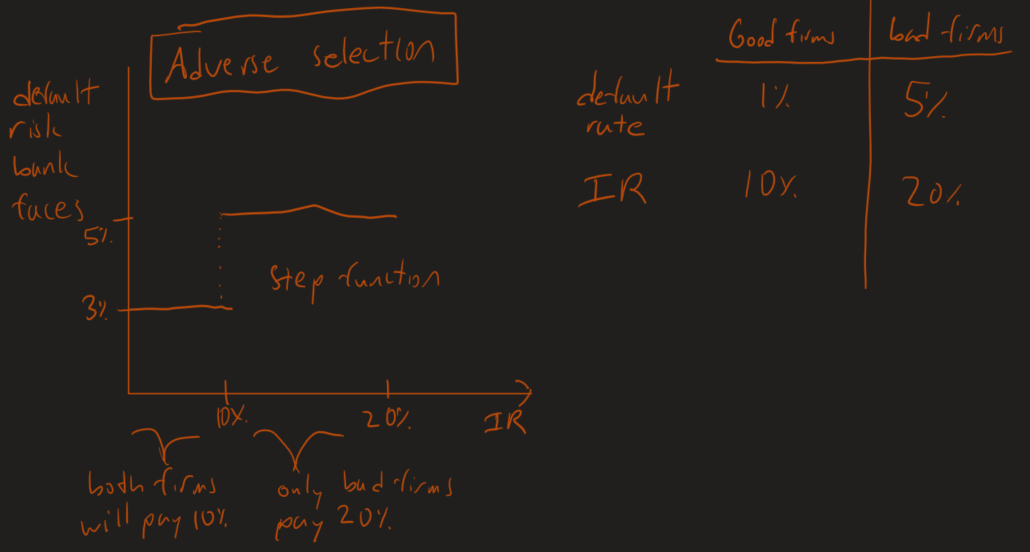 Adverse selection
default
risk
bank
faces
5%
3%
step function
10%
20%
IR
both firms
will pay 10%
only bad firms
pay 20%
Good firms
bad firms
default
rate
1%
5%
IR
10%
20%